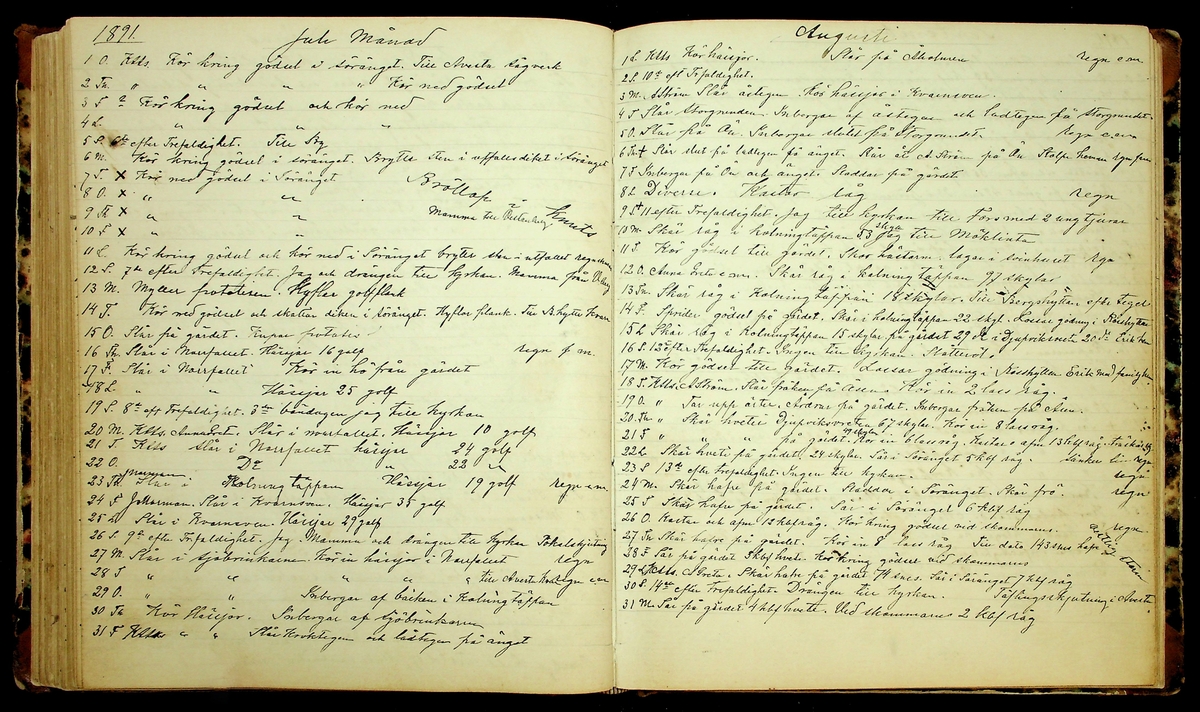 1891.
Juli Månad
1 O. Klls. Kör kring gödsel i Söränget. Till Avesta sågverk
2 To. " " " " Kör ned gödsel
3 F. Kör kring gödsel och kör ned
4 L. " " "
5 S. 6te efter Trefaldighet. Till By
6 M. Kör kring gödsel i söränget. Brytte sten i utfallsdiket i Söränget
7 T. x Kör ned gödsel i Söränget Bröllop
8 O. x " "
9 Th x " " Mamma till
10 F. x " "
11 L. Kör kring gödsel och kör ned i Söränget brytte sten i utfallet regn
12 S. 7de efter Trefaldighet. Jag och drängen till kyrkan. Mamma från
13 M. Myller potatisen. Hyflar golfplank
14 T. Kör ned gödsel och skottar diken i söränget. Hyflar plank.
15 O. Slår på gärdet. potatis
16 Th. Slår i Norrfallet. Hässjar 16 golf regn f m.
17 F. Slår i Norrfallet Kör in hö från gärdet
18 L. " " Hässjar 25 golf
19 S. 8de eft Trefaldighet. 3de böndagen jag till kyrkan
20 M. Klls. Anna Greta. Slår i norrfallet. Hässjar 10 golf
21 T. Klls Slår i Norrfallet hässjar 24 golf
22 O. Do " 22 "
23 Th Slår i Kolningtäppan Hässjar 19 golf regn e m.
24 F. Slår i Kvarnsven. Hässjar 35 golf
25 L Slår i Kvarnsven. Hässjar 29 golf
26 S. 9de efter Trefaldighet. Jag Mamma och drängen till Kyrkan Pokalskjutning
27 M. Slår i Sjöbrinkarne. Kör in hässjor i Norrfallet regn
28 T " " " " till Avesta regn em
29 O. " " Inbergar af bäcken i Kolningtäppan
30 To Kör Hässjor. Inbergar af Sjöbrinkarne
31 F Klls " " Slår Kroktegen och ladtegen på änget
Augusti
1 L. Klls Kör hässjor. Slår på Åholmen regn e m.
2 S. 10de eft Trefaldighet.
3 M. A Ström Slår åstegen. Kör hässjor i Kvarnsven.
4 T Slår Storgrunden Inbergar af åstegen och ladtegen på storgrundet
5 O. Slår på Ön. Inbergar slutet på Storgrundet. regn
6 To Slår slut på ladtegen på änget. A Ström på Ön
7 F Inbergar på Ön och änget. Sladdar på gärdet
8 L Diverse. Kastar råg regn
9 S 11 efter Trefaldighet. Jag till kyrkan till Fors med 2 ungtjurar
10 M. Skär råg i kolningtäppan 53 skyl Jag till Möklinta
11 T. Kör gödsel till gärdet. Skor hästarne. lagar i svinhuset
12 O. Anna Greta e m. Skär råg i kolningtäppan 97 skylar
13 To. Skär råg i Kolningtäppan 18 skylar. Till Bergshyttan efter tegel
14 F. Sprider gödsel på gärdet. Skär i kolningtäppan 22 skyl. Lossar gödning i Rosshyttan
15 L Skär råg i Kolningtäppan 15 skylar på gärdet 29 St i Djupviksvret 20 St
16 S. 12 efter Trefaldighet. Ingen till kyrkan.
17 M. Kör gödsel till gärdet. Lossar gödning i Rosshyttan Erik med familj hem
18 T. Klls. A Ström. Slår fräken på åsen. Kör in 2 lass råg.
19 O. " Tar upp ärter. Årdrar på gärdet. Inbergar fräken på Åsen.
20 Th. " Skär hvete i Djupviksvreten 67 skylar. Kör in 8 lass råg.
21 F " " " på gärdet. Kör in 6 lass råg. Kastar o afm 13 kbf råg.
22 L Skär hvete på gärdet. 24 skylar. Sår i Söränget 5 kbf råg.
23 S 13de efter Trefaldighet. Ingen till kyrkan. regn
24 M. Skär hafre på gärdet. Sladdar i Söränget. Skär frö. regn
25 T Skär hafre på gärdet. Sår i Söränget 6 kbf råg
26 O. Kastar och afm 13 kbf råg. Kör kring gödsel vid skommarns. regn
27 To Skär hafre på gärdet. Kör in 8 lass råg. Till dato 143 snes hafre
28 F Sår på gärdet 5 kbf hvete. Kör kring gödsel vid skommarns
29 L Klls. A Greta. Skär hafre på gärdet 74 snes. Sår i Söränget 7 kbf råg
30 S. 14de efter Trefaldighet. Drängen till kyrkan. Täflingsskjutning i Avesta.
31 M Sår på gärdet 4 kbf hvete. Vid skommarns 2 kbf råg